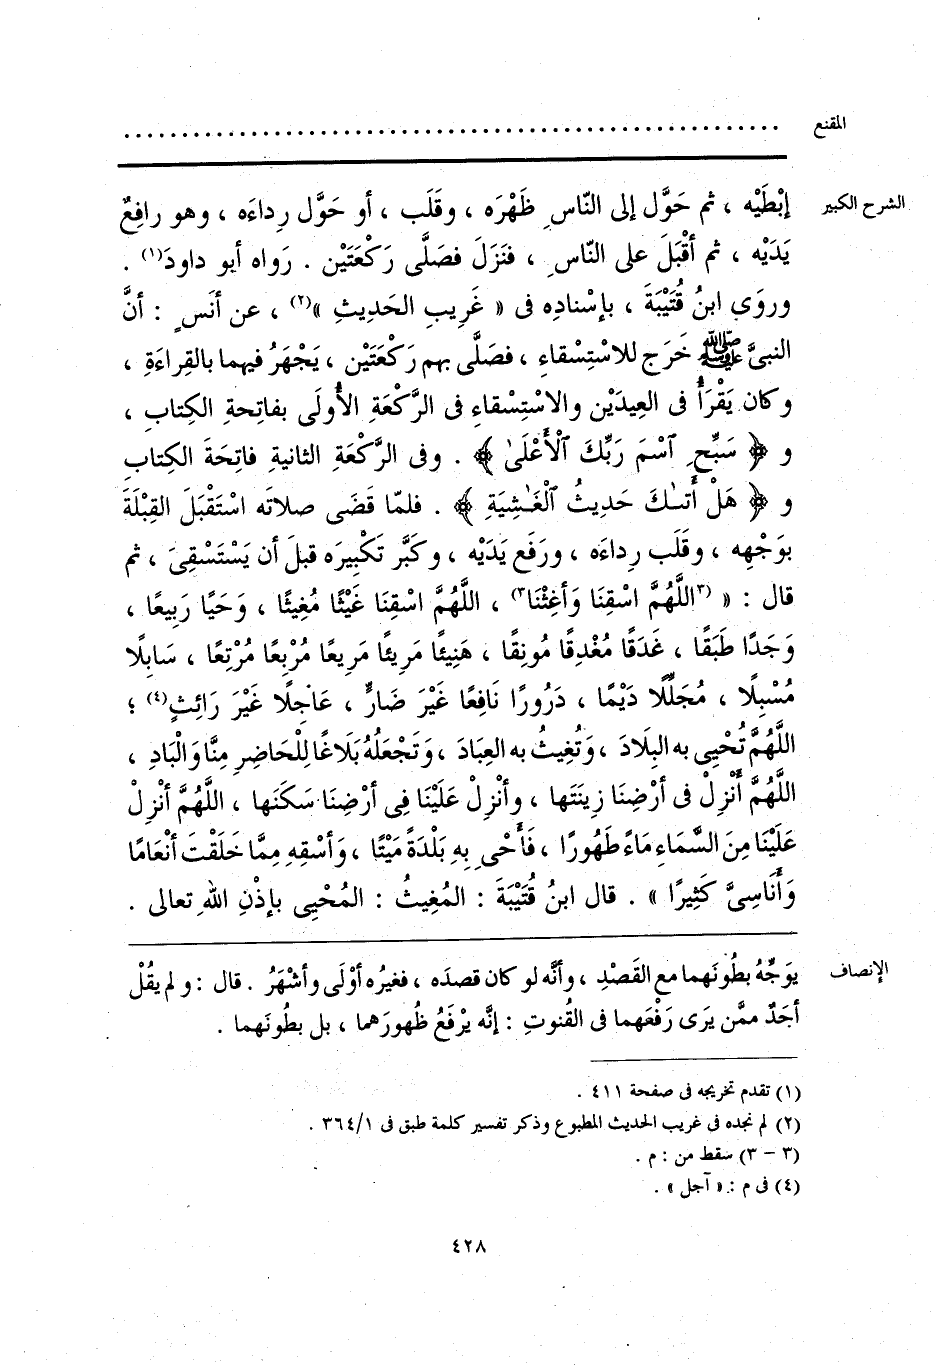 المقنع ................................................
الشرح الكبير إِبْطَيْه ، ثم حَوَّل إلى النّاسِ ظَهْرَه ، وقَلَب ، أو حَوَّل رِداءَه ، وهو رافِعٌ
يَدَيْه ، ثم أقْبَلَ على النّاسِ ، فنَزَلَ فصَلَّى رَكْعَتَيْن . رَواه أبو داودَ(١) .
وروَى ابنُ قُتَيْبَةَ ، بإسْنادِه فى « غَرِيبِ الحَدِيثِ »(٢) ، عن أنَسٍ : أنَّ
النبىَّ ﷺ خَرَج للاسْتِسْقاءِ ، فصَلَّى بهم رَكْعَتَيْن ، يَجْهَرُ فيهما بالقِراءَةِ ،
وكان يَقْرَأُ فى العِيدَيْن والاسْتِسْقاءِ فى الرَّكْعَةِ الأُولَى بفاتِحةِ الكِتابِ ،
و ﴿ سَبِّحِ ٱسْمَ رَبِّكَ ٱلْأَعْلَىٰ ﴾ . وفى الرَّكْعَةِ الثانيةِ فاتِحَةَ الكِتابِ
و ﴿ هَلْ أَتَـٰكَ حَدِيثُ ٱلْغَـٰشِيَةِ ﴾ . فلمّا قَضَى صلاتَه اسْتَقْبَلَ القِبْلَةَ
بوَجْهِه ، وقَلَب رِداءَه ، ورَفَع يَدَيْه ، وكَبَّر تَكْبِيرَه قبلَ أن يَسْتَسْقِىَ ، ثم
قال : « (٣اللَّهُمَّ اسْقِنَا وَأغِثْنَا٣) ، اللَّهُمَّ اسْقِنَا غَيْثًا مُغِيثًا ، وَحَيًا رَبِيعًا ،
وَجَدًا طَبَقًا ، غَدَقًا مُغْدِقًا مُونِقًا ، هَنِيئًا مَرِيئًا مَرِيعًا مُرْبِعًا مُرْتِعًا ، سَابِلًا
مُسْبِلًا ، مُجَلِّلًا دَيْمًا ، دَرُورًا نَافِعًا غَيْرَ ضَارٍّ ، عَاجِلًا غَيْرَ رَائِثٍ(٤) ؛
اللَّهُمَّ تُحْيِى به البِلَادَ ، وَتُغِيثُ به العِبَادَ ، وَتَجْعَلُهُ بَلَاغًا لِلْحَاضِرِ مِنَّا وَالْبَادِ ،
اللَّهُمَّ أَنْزِلْ فى أرْضِنَا زِينَتَها ، وأنْزِلْ عَلَيْنَا فِى أرْضِنَا سَكَنَها ، اللَّهُمَّ أنْزِلْ
عَلَيْنَا مِنَ السَّمَاءِ مَاءً طَهُورًا ، فَأَحْىِ بِهِ بَلْدَةً مَيْتًا ، وَأسْقِهِ مِمَّا خَلَقْتَ أنْعَامًا
وَأَنَاسِىَّ كَثِيرًا » . قال ابنُ قُتَيْبَةَ : المُغِيثُ : المُحْيِى بإذْنِ اللهِ تعالى .
الإنصاف يوَجِّهُ بطُونَهما مع القَصْدِ ، وأنَّه لو كان قصدَه ، فغيرُه أوْلَى وأشْهَرُ . قال : ولم يقُلْ
أحَدٌ ممَّن يرَى رَفْعَهما فى القُنوتِ : إنَّه يرْفَعُ ظُهورَهما ، بل بطُونَهما .
(١) تقدم تخريجه فى صفحة ٤١١ .
(٢) لم نجده فى غريب الحديث المطبوع وذكر تفسير كلمة طبق فى ٣٦٤/١ .
(٣ - ٣) سقط من : م .
(٤) فى م : « آجل » .
٤٢٨